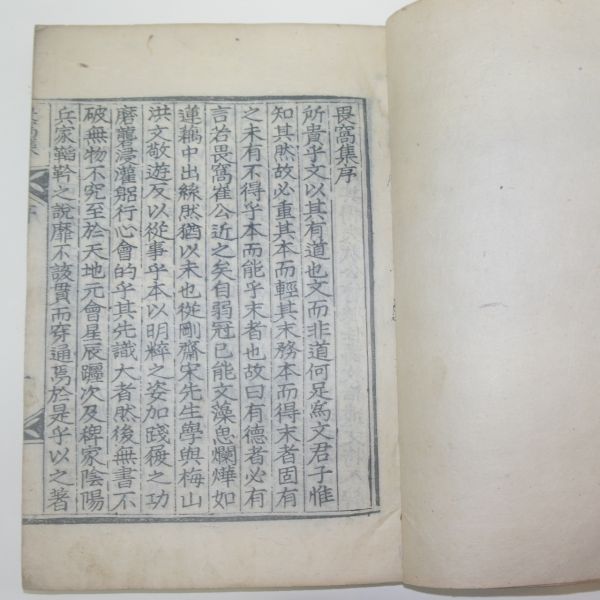 畏窩集序
所貴乎文以其有道也文而非道何足爲文君子惟
知其然故必重其本而輕其末務本而得末者固有
之未有不得乎本而能乎末者也故曰有德者必有
言若畏窩崔公近之矣自弱冠已能文藻思爛燁如
蓮藕中出絲然猶以末也從剛齋宋先生學與梅山
洪文敬遊反以從事乎本以明粹之姿加踐履之功
磨礱浸灌躬行心會的乎其先識大者然後無書不
破無物不究至於天地元會星辰躔次及稗家陰陽
兵家韜鈐之說靡不該貫而穿通焉於是乎以之著